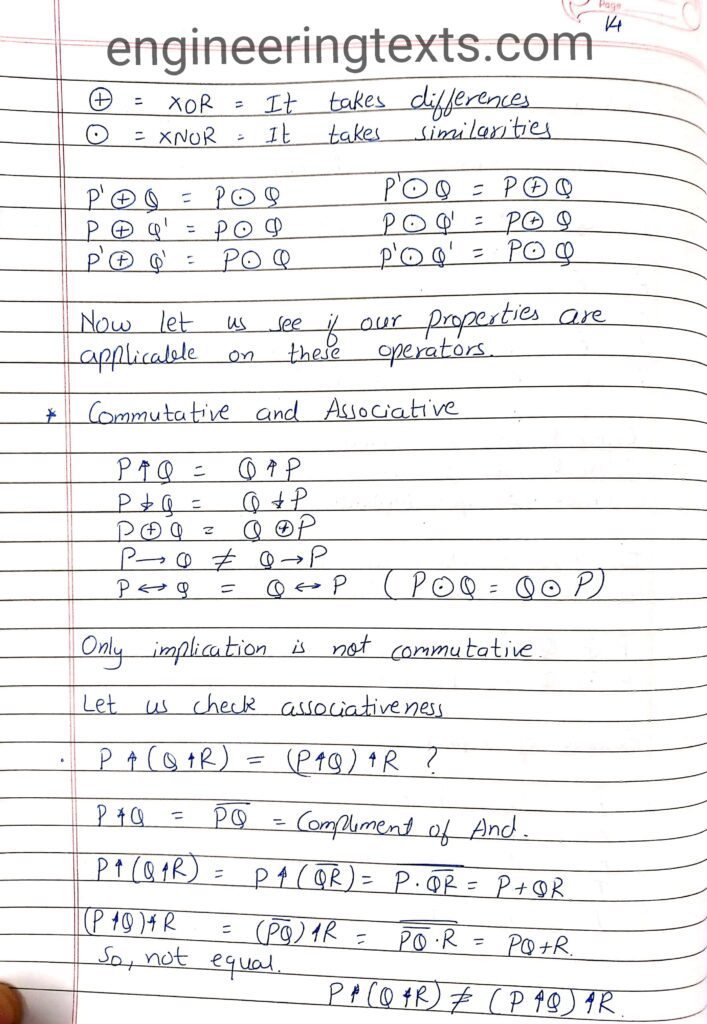 Page
14
engineeringtexts.com
⊕ = XOR = It takes differences
⊙ = XNOR = It takes similarities
P'⊕Q = P⊙Q    P'⊙Q = P⊕Q
P⊕Q' = P⊙Q    P⊙Q' = P⊕Q
P'⊕Q' = P⊙Q    P'⊙Q' = P⊙Q
Now let us see if our properties are
applicable on these operators.
* Commutative and Associative
P↑Q = Q↑P
P↓Q = Q↓P
P⊕Q = Q⊕P
P→Q ≠ Q→P
P↔Q = Q↔P (P⊙Q = Q⊙P)
Only implication is not commutative.
Let us check associativeness
. P↑(Q↑R) = (P↑Q)↑R ?
P↑Q = P̅Q̅ = Compliment of And.
P↑(Q↑R) = P↑(Q̅R̅) = P̅·̅Q̅R̅ = P+QR
(P↑Q)↑R = (P̅Q̅)↑R = P̅Q̅·R̅ = PQ+R.
So, not equal.
P↑(Q↑R) ≠ (P↑Q)↑R.